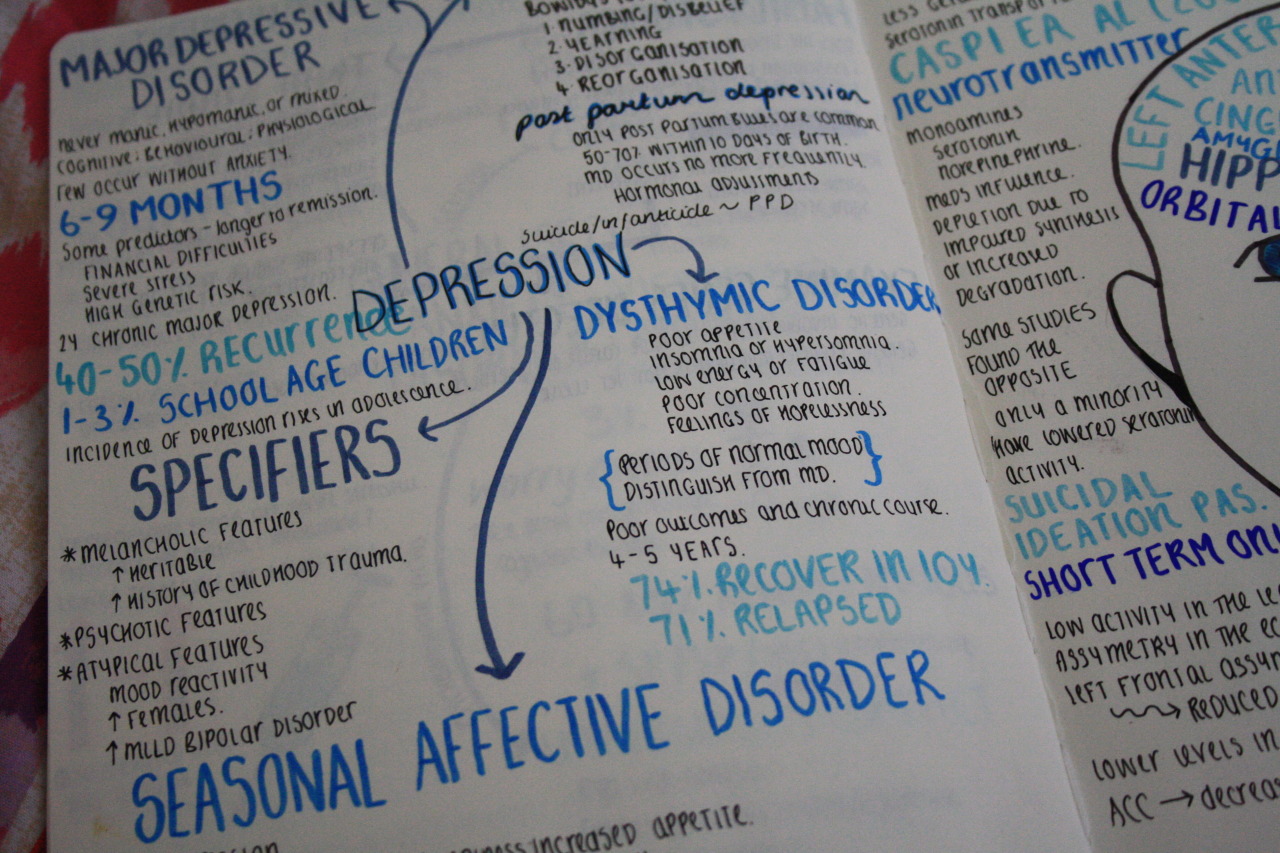 MAJOR DEPRESSIVE
DISORDER
never manic, hypomanic, or mixed.
cognitive; Behavioural; Physiological
few occur without anxiety.
6-9 MONTHS
Some predictors - longer to remission.
FINANCIAL DIFFICULTIES
severe stress
HIGH Genetic risk.
24 CHRONIC major Depression.
40-50% RECURRENCE
1-3% SCHOOL AGE CHILDREN
INCIDENCE OF Depression rises in adolescence.
SPECIFIERS
*MELANCHOLIC Features
↑ Heritable
↑ HISTORY OF CHILDHOOD Trauma.
*PSYCHOTIC Features
*ATYPICAL Features
MOOD REACTIVITY
↑ Females.
↑ MILD BIPOLAR DISORDER
1. NUMBING/DISBELIEF
2. YEARNING
3. DISORGANISATION
4. REORGANISATION
post partum depression
ONLY POST PARTUM BLUES are common
50-70% WITHIN 10 DAYS OF BIRTH.
MD OCCURS NO MORE Frequently.
Hormonal adjustments
suicide/infanticide ~ PPD
DEPRESSION
DYSTHYMIC DISORDER
POOR APPETITE
INSOMNIA OR HYPERSOMNIA.
LOW ENERGY OR FATIGUE
POOR CONCENTRATION.
FEELINGS OF HOPELESSNESS
{PERIODS OF NORMAL MOOD}
DISTINGUISH FROM MD.
POOR outcomes and chronic course.
4-5 YEARS.
74% RECOVER IN 10Y.
71% RELAPSED
SEASONAL AFFECTIVE DISORDER
increased appetite.
serotonin
CASPI EA AL
neurotransmitter
monoamines
serotonin
norepinephrine.
meds influence.
Depletion Due to
impaired synthesis
or increased
Degradation.
some studies
found the
opposite
only a minority
have lowered seratonin
activity.
SUICIDAL
IDEATION PAS.
SHORT TERM
LOW ACTIVITY IN THE
ASSYMETRY IN THE
left frontial
→ REDUCED
Lower Levels in
ACC →
LEFT
CING
HIPP